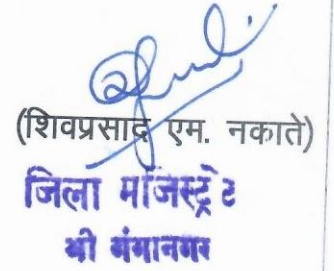 (शिवप्रसाद एम. नकाते)
जिला मजिस्ट्रेट
श्री गंगानगर